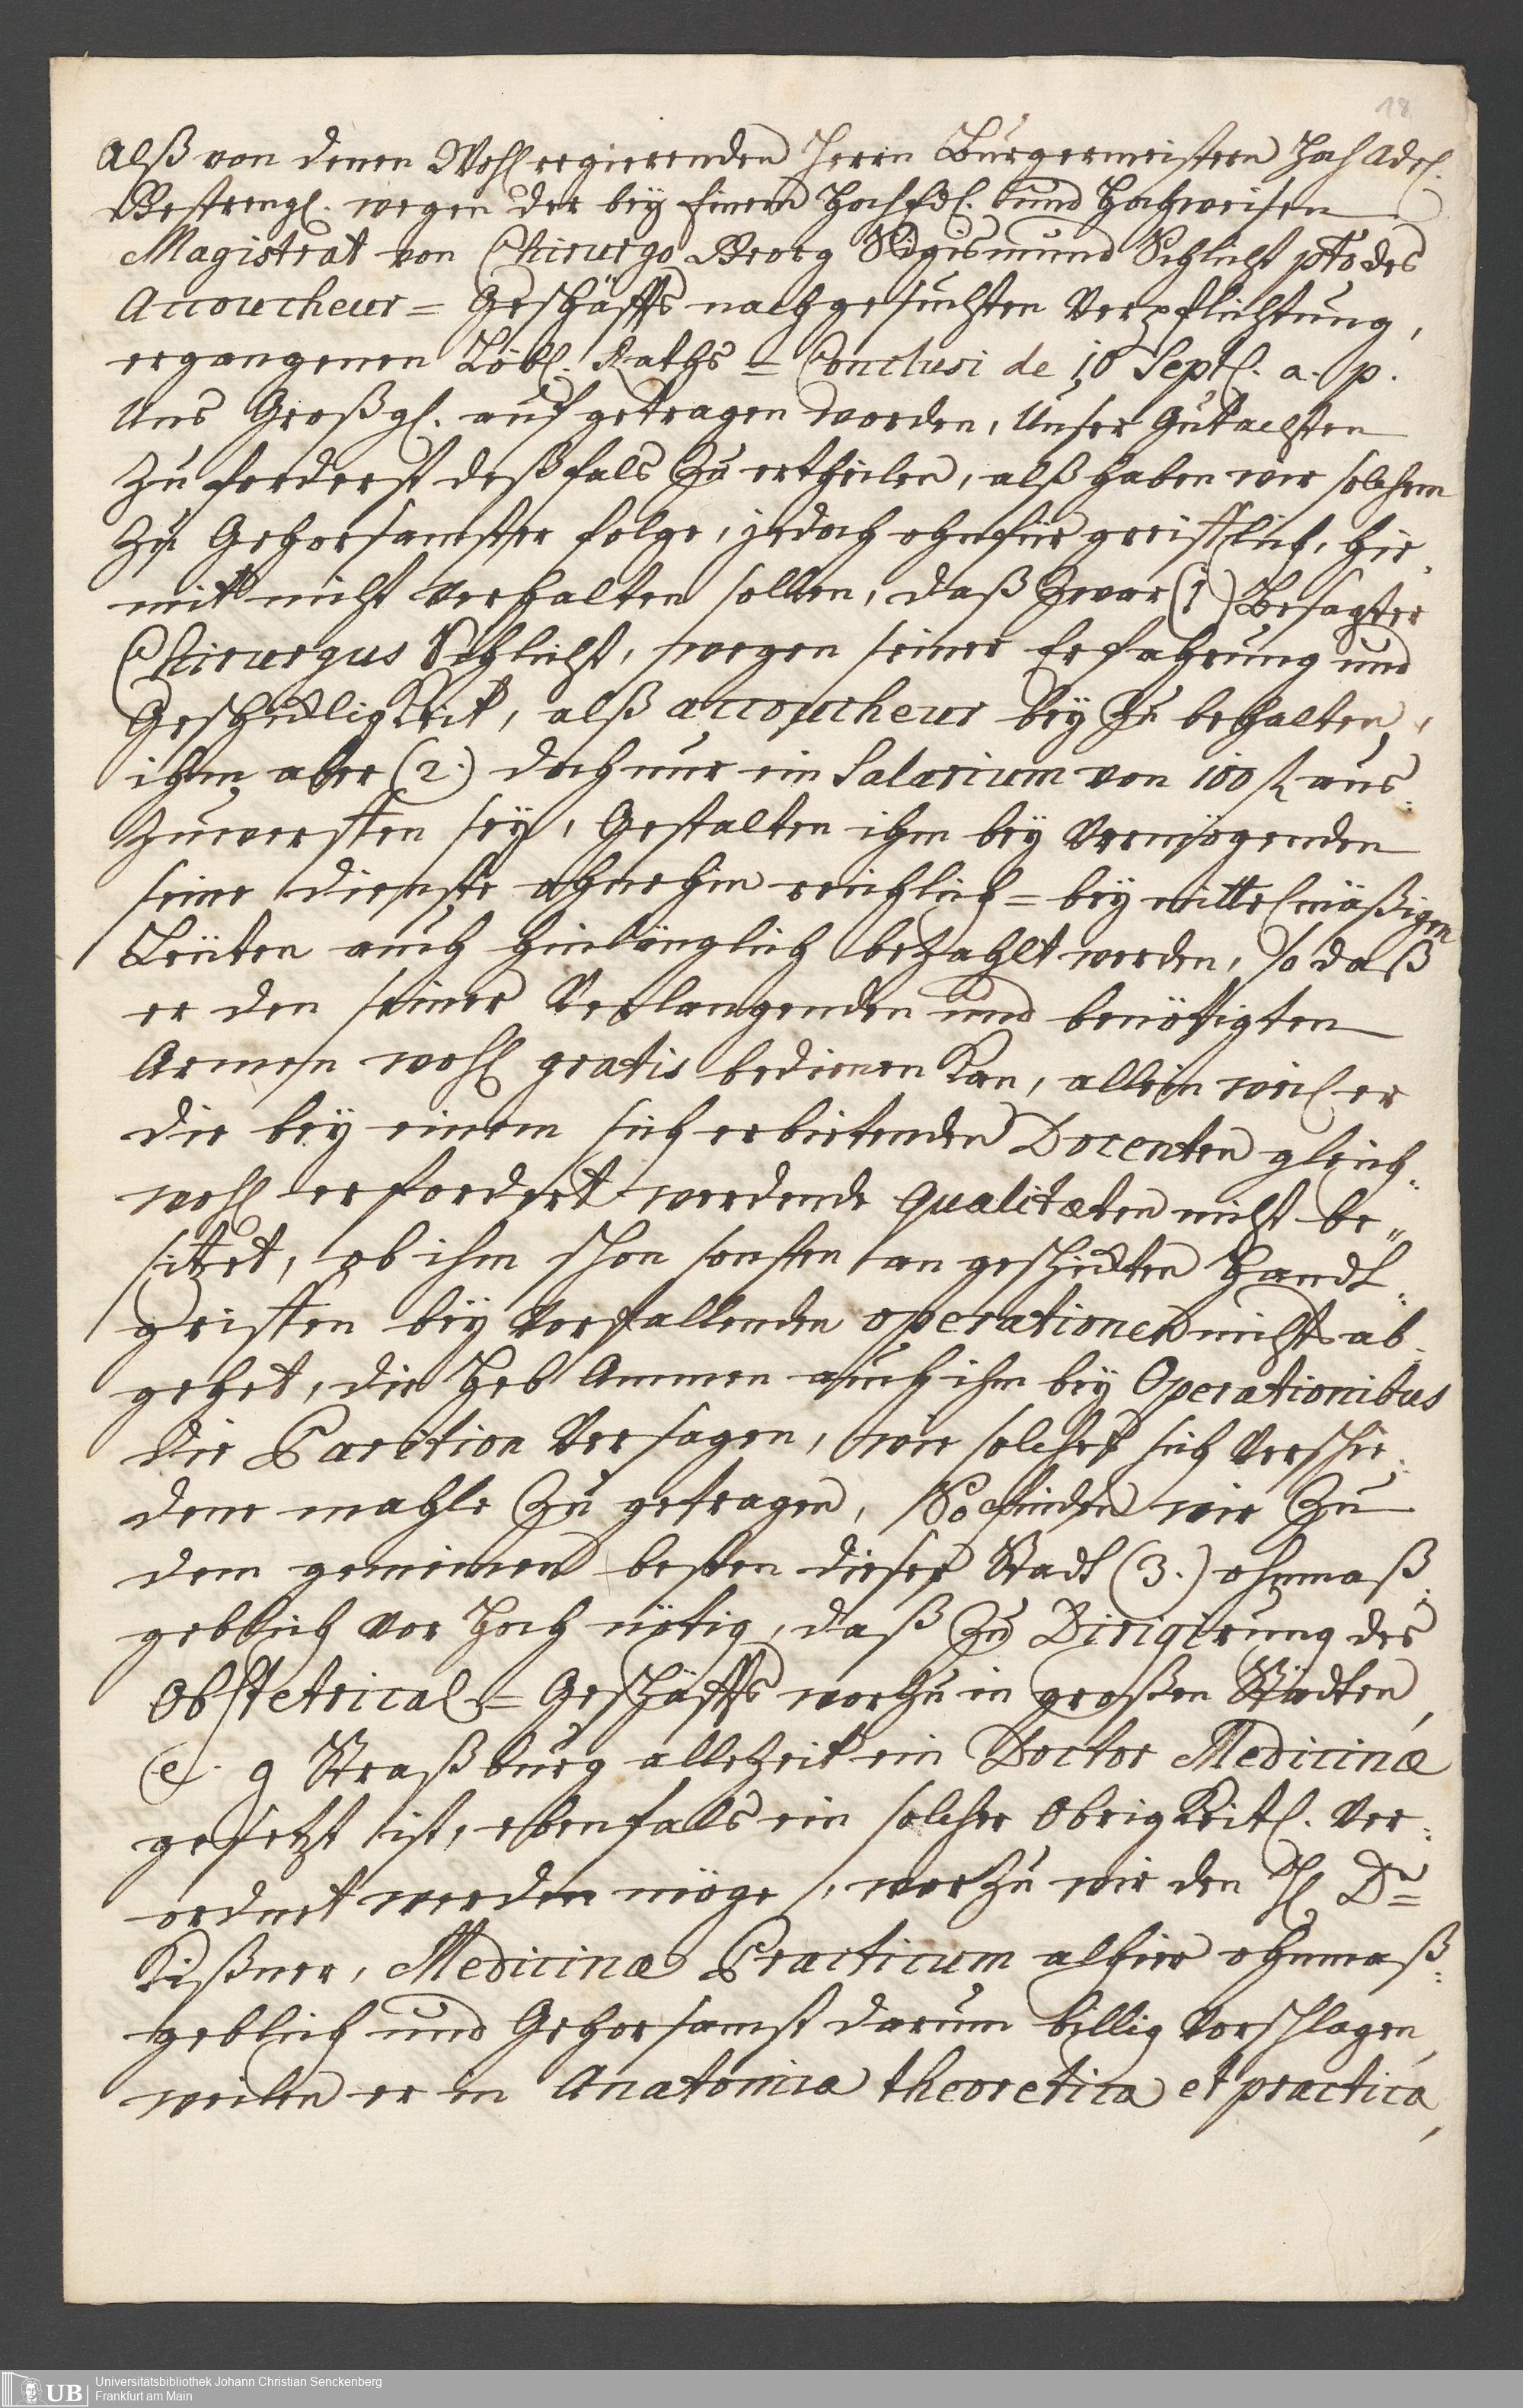 18
Alß von denen Wohlregierenden Herrn Burgermeistern HochAdel.
Gestrengl. wegen der bey Einem Hochedl. und Hochweisen
Magistrat von Chirurgo Georg Sigismund Schlicht pto des
Accoucheur= Geschäffts nachgesuchten Verpflichtung,
ergangenen Löbl. Raths= Conclusi de 10 Septl. a. p.
Uns Großgl. aufgetragen worden, Unser Gutachten
zuforderst deßfals zu ertheilen, alß haben wir solchem
zu Gehorsamster folge, jedoch ohnfürgreifflich, hie-
mit nicht verhalten sollen, daß zwar (1) Besagter
Chirurgus Schlicht, wegen seiner Erfahrung und
Geschickligkeit, alß accoucheur bey zu behalten,
ihm aber (2.) doch nur ein Salarium von 100 f. aus-
zuwerffen sey, Gestalten ihm bey Vermögenden
seine dienste ohnehin reichlich= bey mittelmäßigen
Leüten auch hinlänglich bezahlt werden, so daß
er den seiner Verlangenden und benöttigten
Armen wohl gratis bedienen kan, allein weil er
die bey einem sich erbietenden Docenten gleich-
wohl erfordert werdende qualitæten nicht be-
sitzet, ob ihm schon sonsten an geschickten Handt-
griffen bey vorfallenden operationen nichts ab-
gehet, die Heb Ammen auch ihm bey Operationibus
die Parition versagen, wie solches sich verschie-
dene mahle zu getragen, So finden wir zu
dem gemeinen besten dieser Stadt (3.) ohnmaß-
geblich vor Hoch nötig, daß zu Dirigirung des
Obstetrical= Geschäffts worzu in großen Städten,
e. g Straßburg allezeit ein Doctor Medicinæ
gesetzt ist, ebenfalls ein solcher Obrigkeitl. ver-
ordnet werden möge, worzu wir den H. Dr.
Kißner, Medicinæ Practicum alhier ohnmaß-
geblich und Gehorsamst darum billig vorschlagen,
weilen er in Anatomia theoretica et practica,
UB Universitätsbibliothek Johann Christian Senckenberg
Frankfurt am Main